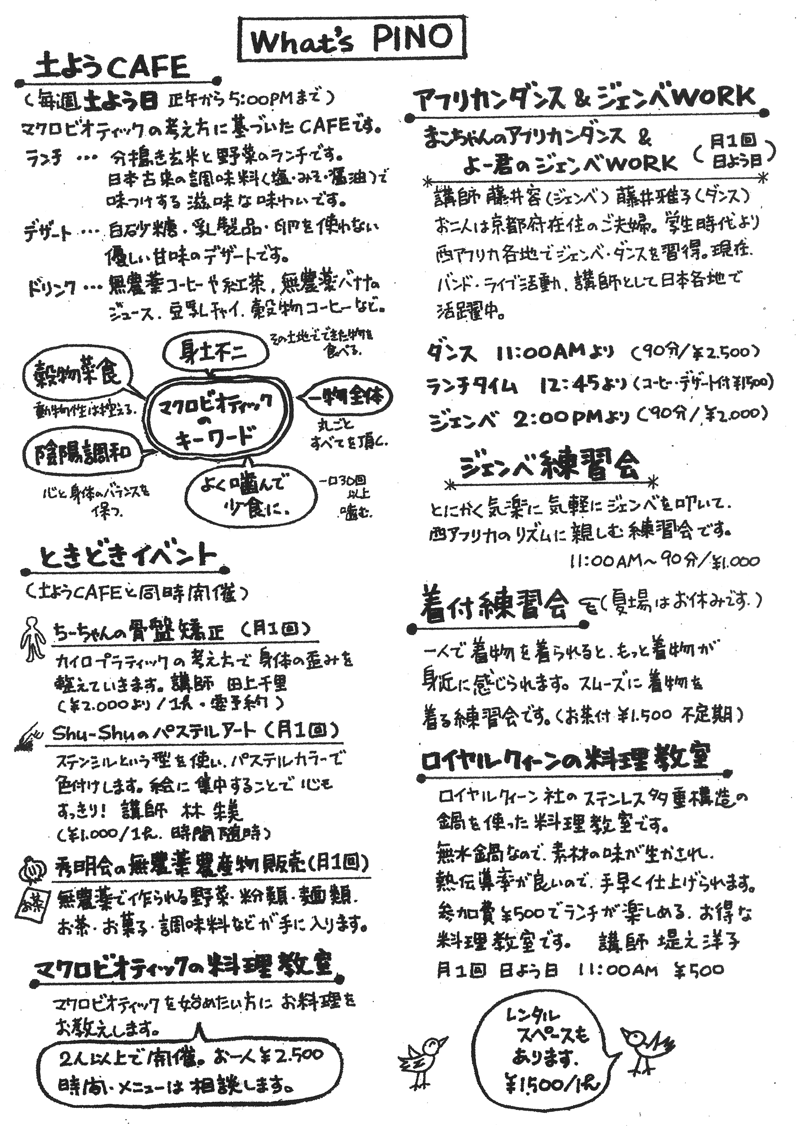 What's PINO
土ようCAFE
(毎週土よう日 正午から5:00PMまで)
マクロビオティックの考え方に基づいたCAFEです。
ランチ … 分搗き玄米と野菜のランチです。
日本古来の調味料(塩・みそ・醤油)で
味つけする滋味な味わいです。
デザート … 白砂糖・乳製品・卵を使わない
優しい甘味のデザートです。
ドリンク … 無農薬コーヒーや紅茶、無農薬バナナの
ジュース、豆乳チャイ、穀物コーヒーなど。
身土不二
その土地でできた物を
食べる。
穀物菜食
動物性は控える。
マクロビオティック
の
キーワード
一物全体
丸ごと
すべてを頂く。
陰陽調和
心と身体のバランスを
保つ。
よく噛んで
少食に。
一口30回
以上
噛む。
ときどきイベント
(土ようCAFEと同時開催)
ちーちゃんの骨盤矯正 (月1回)
カイロプラティックの考え方で身体の歪みを
整えていきます。講師 田上千里
(¥2.000より/1h・要予約)
Shu-Shuのパステルアート(月1回)
ステンシルという型を使い、パステルカラーで
色付けします。絵に集中することで心も
すっきり! 講師 林 朱美
(¥1.000/1h. 時間随時)
秀明会の無農薬農産物販売(月1回)
お茶
無農薬で作られる野菜・粉類・麺類、
お茶・お菓子・調味料などが手に入ります。
マクロビオティックの料理教室
マクロビオティックを始めたい方にお料理を
お教えします。
2人以上で開催。お一人¥2.500
時間・メニューは相談します。
アフリカンダンス&ジェンベWORK
まこちゃんのアフリカンダンス &
よー君のジェンベWORK
(月1回
日よう日)
講師 藤井容(ジェンベ) 藤井雅子(ダンス)
お二人は京都府在住のご夫婦。学生時代より
西アフリカ各地でジェンベ・ダンスを習得。現在、
バンド・ライブ活動、講師として日本各地で
活躍中。
ダンス 11:00AMより (90分/¥2.500)
ランチタイム 12:45より(コーヒー・デザート付¥1500)
ジェンベ 2:00PMより(90分/¥2.000)
ジェンベ練習会
とにかく気楽に気軽にジェンベを叩いて、
西アフリカのリズムに親しむ練習会です。
11:00AM～90分/¥1.000
着付練習会 (夏場はお休みです。)
一人で着物を着られると、もっと着物が
身近に感じられます。スムーズに着物を
着る練習会です。(お茶付 ¥1.500 不定期)
ロイヤルクィーンの料理教室
ロイヤルクィーン社のステンレス多重構造の
鍋を使った料理教室です。
無水鍋なので、素材の味が生かされ、
熱伝導率が良いので、手早く仕上げられます。
参加費¥500でランチが楽しめる、お得な
料理教室です。 講師 堤之洋子
月1回 日よう日 11:00AM ¥500
レンタル
スペースも
あります。
¥1,500/1h